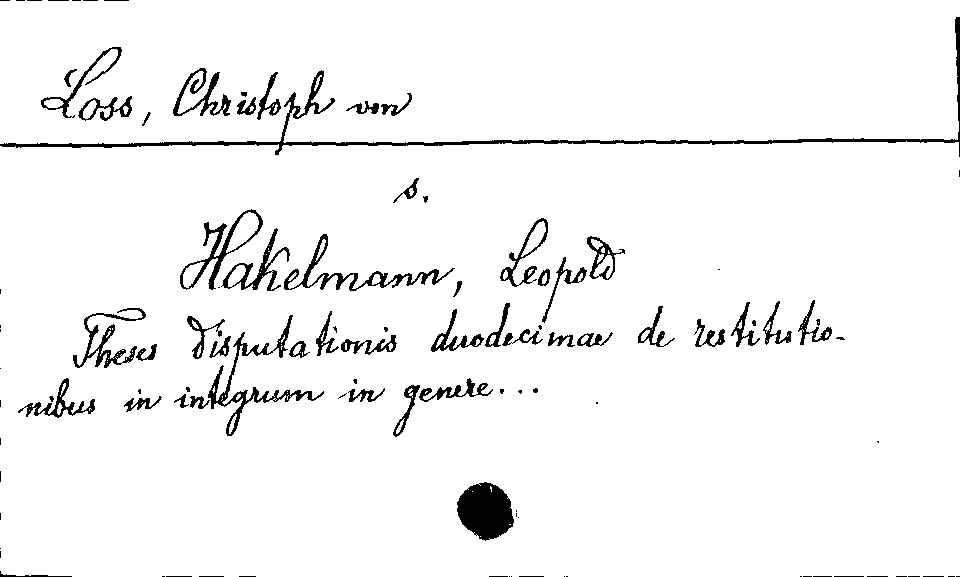 Loss, Christoph von
s.
Hakelmann, Leopold
Theses disputationis duodecimae de restitutio-
nibus in integrum in genere...